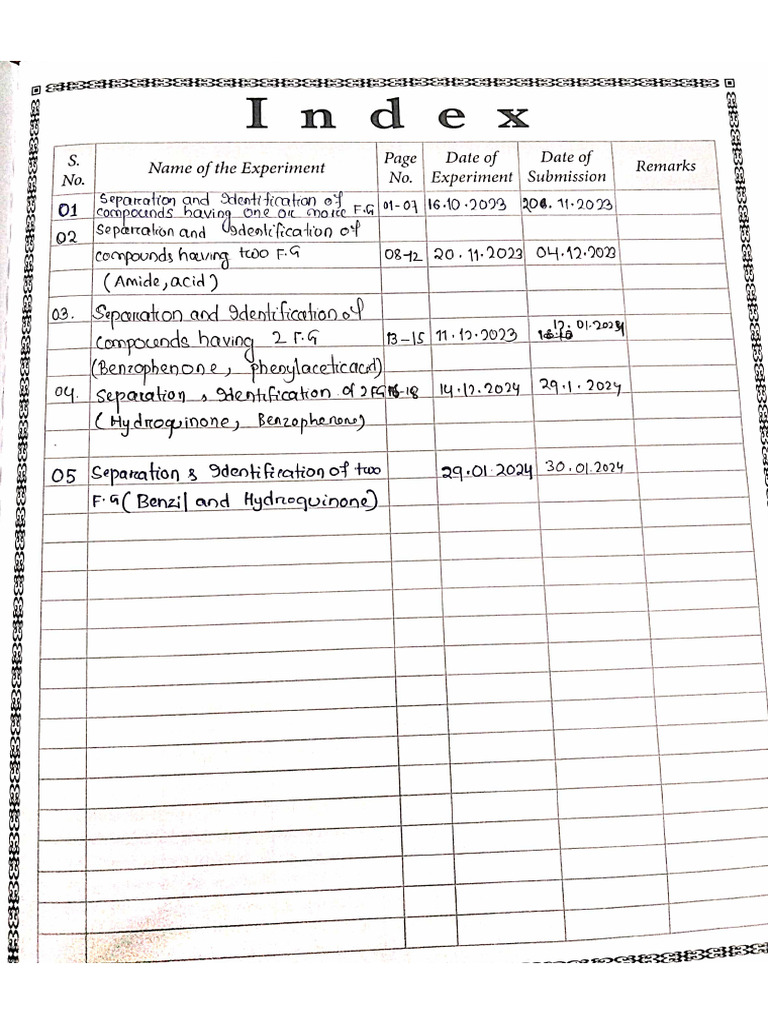 Index
S. No. Name of the Experiment Page No. Date of Experiment Date of Submission Remarks
01 Separation and Identification of
compounds having one or more F.G 01-07 16.10.2023 20.11.2023
02 Separation and Identification of
compounds having two F.G 08-12 20.11.2023 04.12.2023
(Amide, acid)
03. Separation and Identification of
compounds having 2 F.G 13-15 11.12.2023 01.2024
(Benzophenone, phenylaceticacid)
04. Separation & Identification of 2 FG 16-18 14.12.2024 29.1.2024
(Hydroquinone, Benzophenone)
05 Separation & Identification of two 29.01.2024 30.01.2024
F.G (Benzil and Hydroquinone)